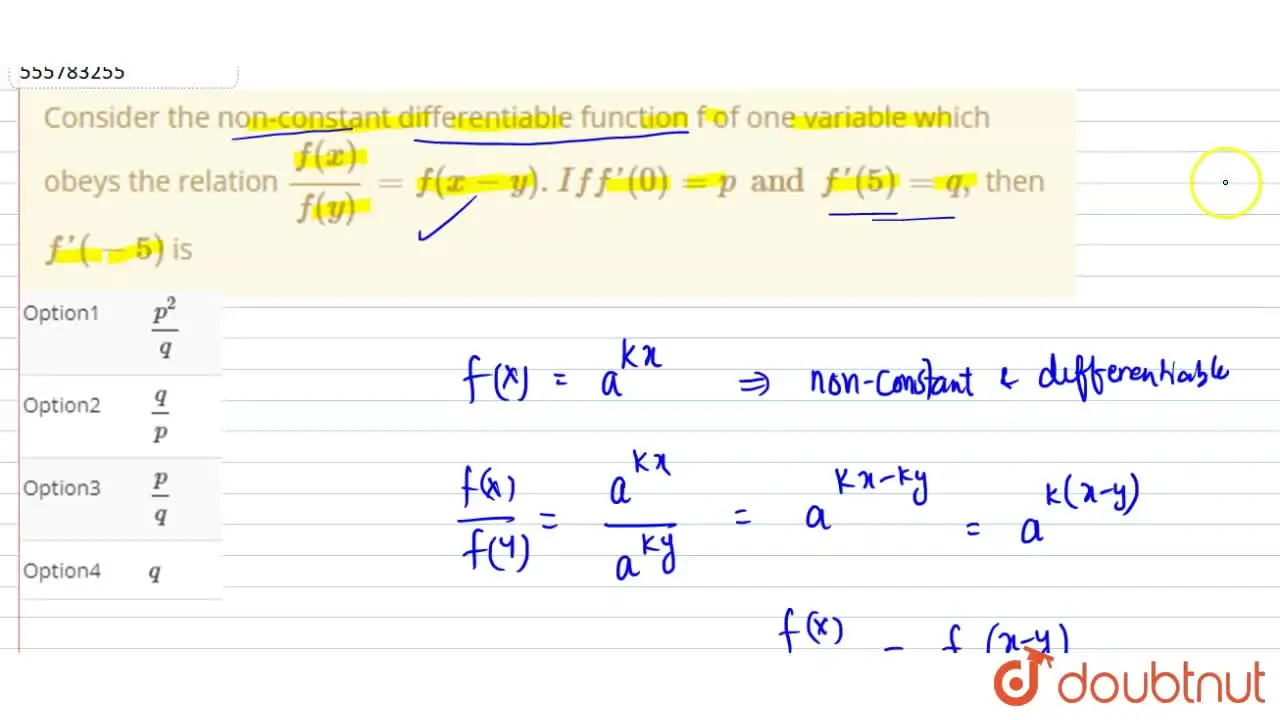 555783255
Consider the non-constant differentiable function f of one variable which
obeys the relation f(x)/f(y) = f(x − y). If f'(0) = p and f'(5) = q, then
f'(−5) is
Option1 p²/q
Option2 q/p
Option3 p/q
Option4 q
f(x) = a^{kx} ⇒ non-constant & differentiable
f(x)/f(y) = a^{kx}/a^{ky} = a^{kx−ky} = a^{k(x−y)}
f(x) = f(x−y)
doubtnut